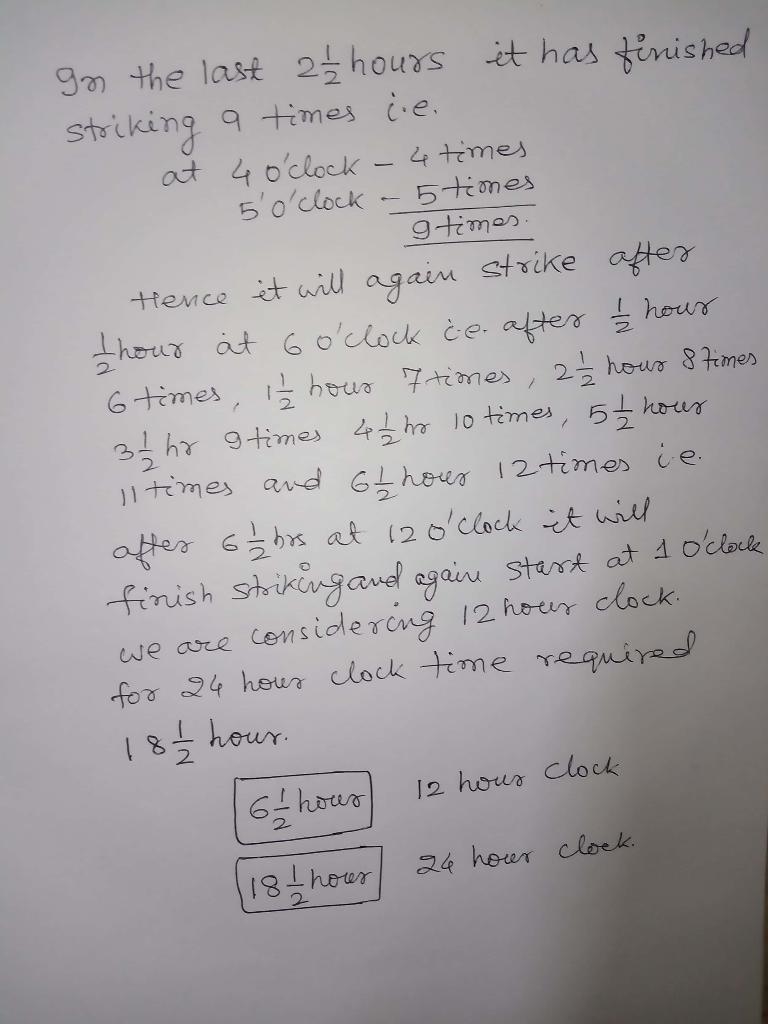 In the last 2 1/2 hours it has finished
striking 9 times i.e.
at 4 o'clock - 4 times
5 o'clock - 5 times
9 times.
Hence it will again strike after
1/2 hour at 6 o'clock i.e. after 1/2 hour
6 times, 1 1/2 hour 7 times, 2 1/2 hour 8 times
3 1/2 hr 9 times 4 1/2 hr 10 times, 5 1/2 hour
11 times and 6 1/2 hour 12 times i.e.
after 6 1/2 hrs at 12 o'clock it will
finish striking and again start at 1 o'clock
we are considering 12 hour clock.
for 24 hour clock time required
18 1/2 hour.
6 1/2 hour 12 hour clock
18 1/2 hour 24 hour clock.